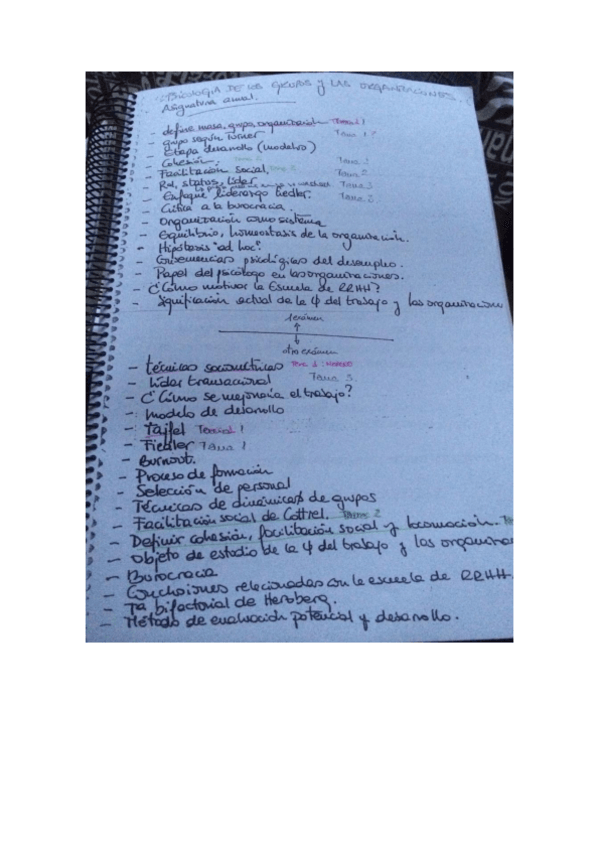 PSICOLOGIA DE LOS GRUPOS y LAS ORGANIZACIONES.
Asignatura anual.
- define masa, grupo, organización Tema 1
- grupo según Turner Tema 1?
- Etapa desarrollo (modelos)
- Cohesión.
- Facilitación social. Tema 2
- Rol, status, líder Tema 3
- Enfoque liderazgo Fiedler.
- Crítica a la burocracia.
- Organización como sistema
- Equilibrio, homeostasis de la organización.
- Hipótesis "ad hoc".
- Consecuencias psicológicas del desempleo.
- Papel del psicólogo en las organizaciones.
- ¿Cómo motivar la Escuela de RRHH?
- Significación actual de la ψ del trabajo y las organizacion
1 examen
otro examen
- técnicas sociométricas Tema 1
- Líder transacional Tema 3.
- ¿Cómo se mejoraría el trabajo?
- modelo de desarollo
- Tajfel Tema 1
- Fiedler Tema 1
- Burnout.
- Proceso de formación
- Selección de personal
- Técnicas de dinámicas de grupos
- Facilitación social de Cottrel. Tema 2
- Definir cohesión, facilitación social y locomoción.
- Objeto de estudio de la ψ del trabajo y las organiza
- Burocracia
- Conclusiones relacionadas con la escuela de RRHH.
- Tª bifactorial de Herzberg.
- Método de evaluación potencial y desarrollo.